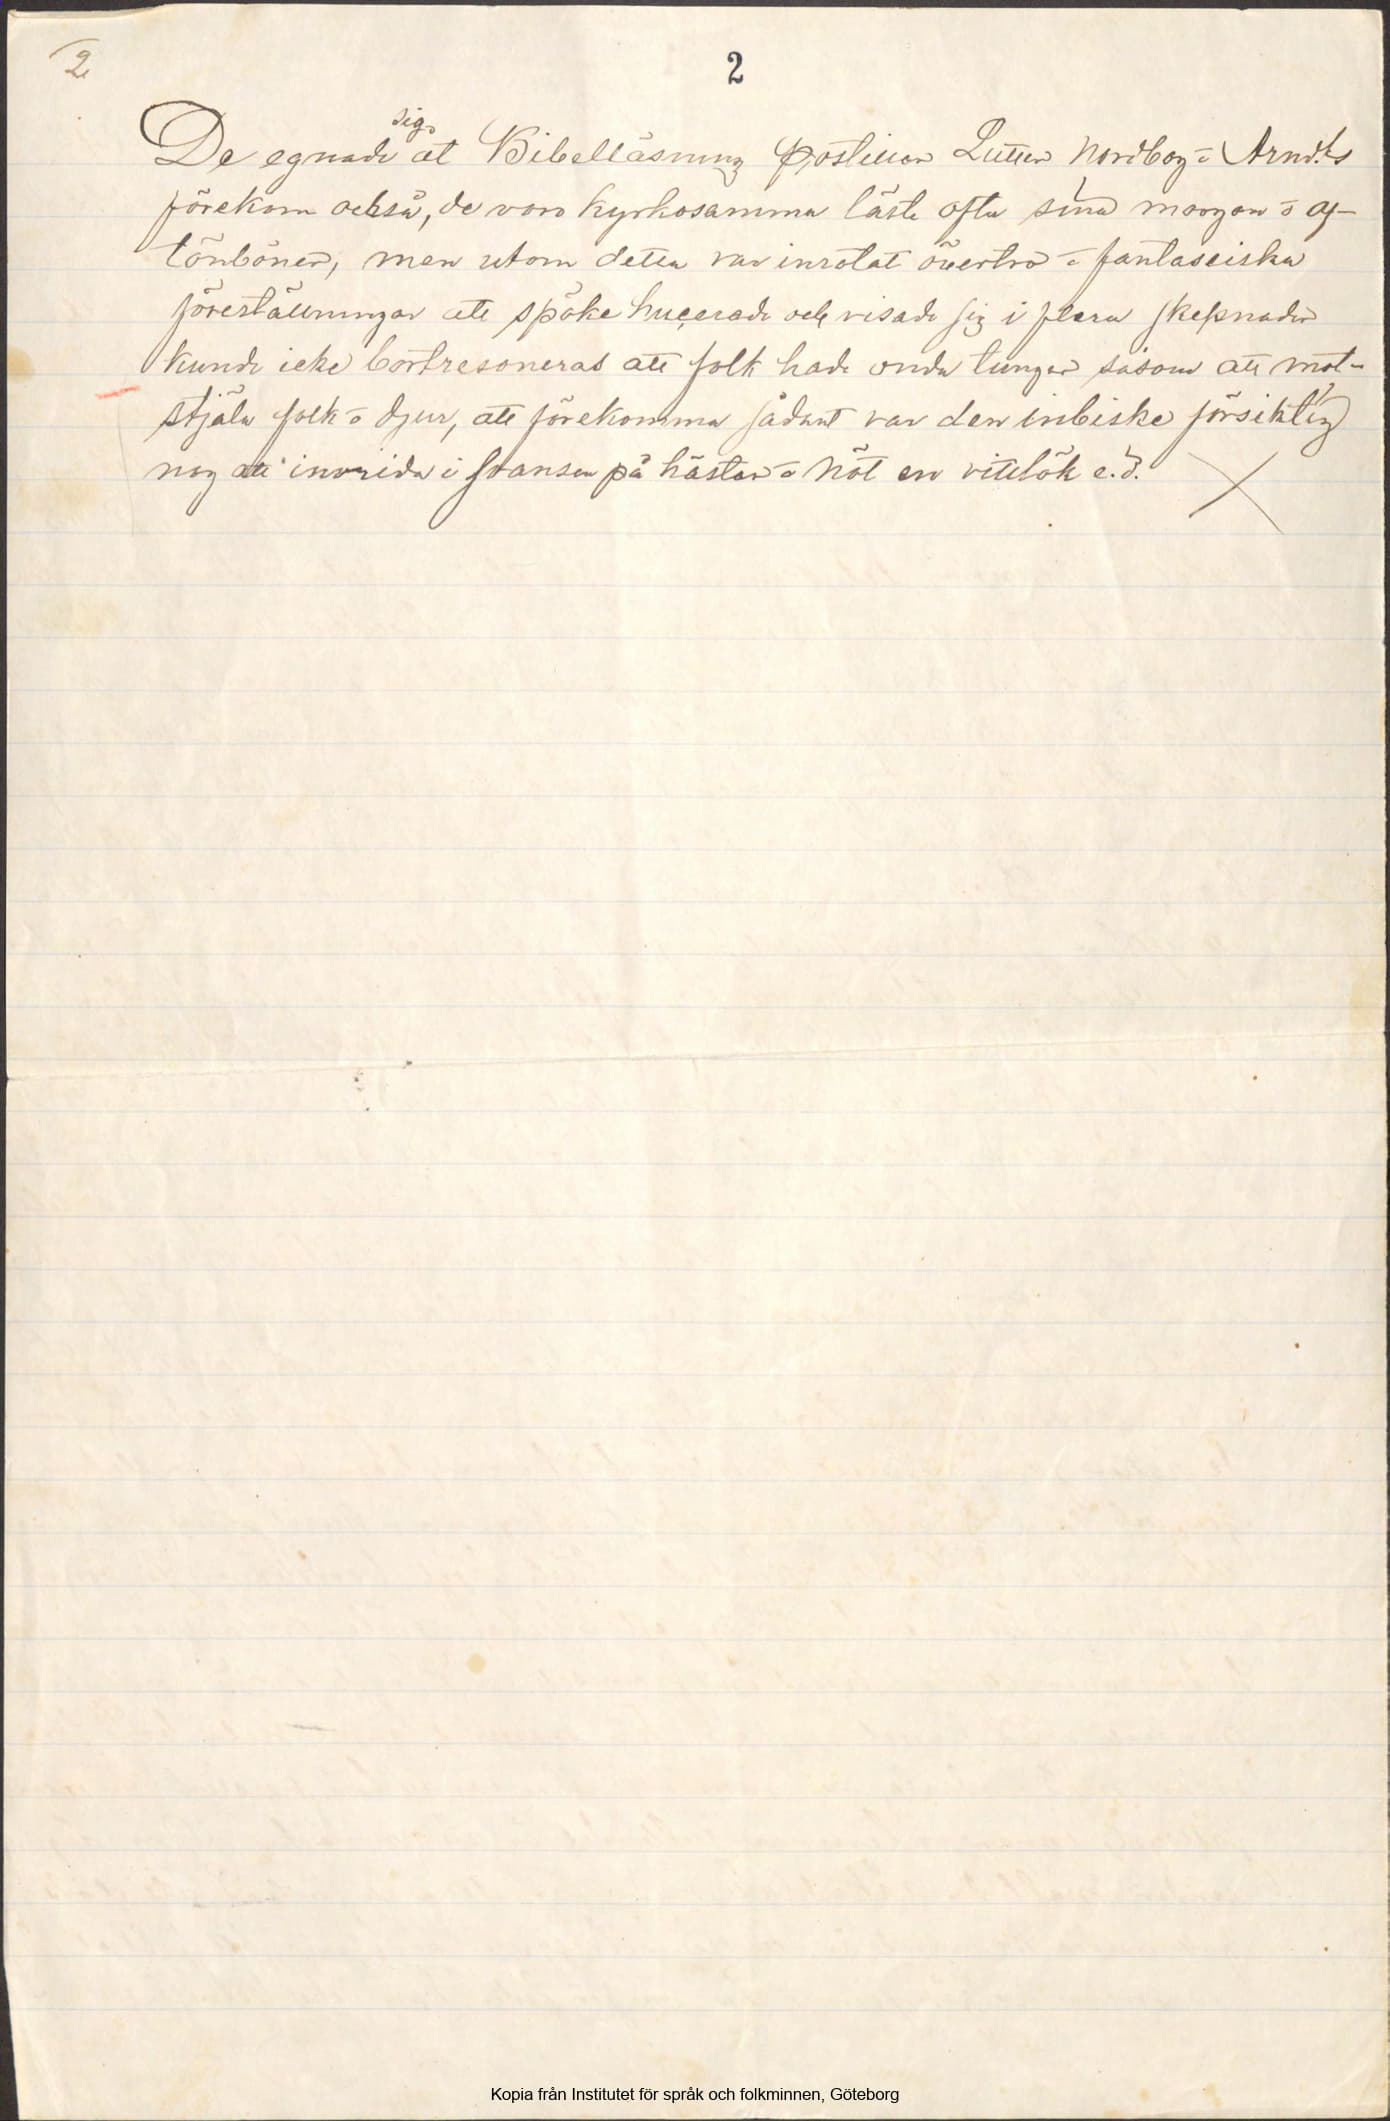 2
2
De egnade sig åt Bibelläsning postillor Lutter Nordborg o Arndts
förekom också, de voro kyrkosamma läste ofta sina morgon o af-
tonböner, men utom detta var inrotat övertro o fantasciska
föreställningar att spöke huserade och visade sig i flera skepnader
kunde icke bortresoneras att folk hade onda tungor såsom att mot-
stjäla folk o djur, att förekomma sådant var den inbiske försiktig
nog att invrida i svansen på hästar o Nöt en vitlök e.d.
Kopia från Institutet för språk och folkminnen, Göteborg